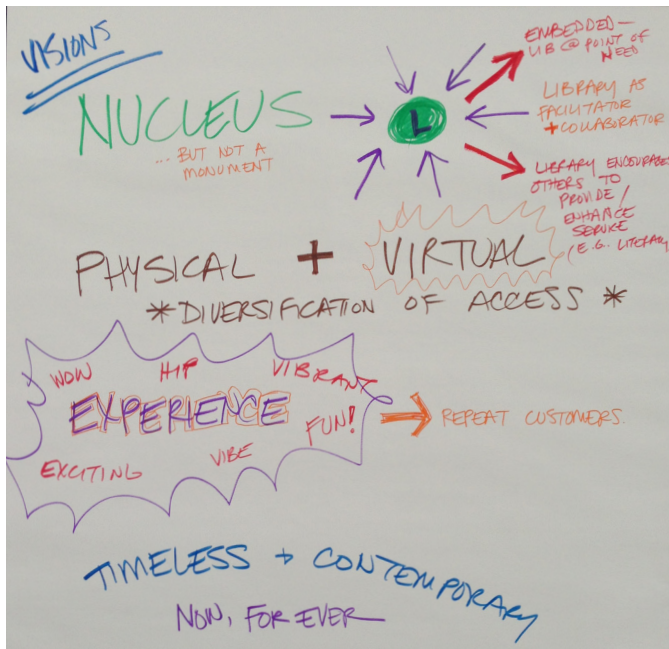 VISIONS
NUCLEUS
...BUT NOT A
MONUMENT
L
EMBEDDED—
LIB @ POINT OF
NEED
LIBRARY AS
FACILITATOR
+ COLLABORATOR
LIBRARY ENCOURAGES
OTHERS TO
PROVIDE/
ENHANCE
SERVICE
(E.G. LITERACY
PHYSICAL + VIRTUAL
* DIVERSIFICATION OF ACCESS *
WOW HIP VIBRANT
EXPERIENCE
FUN!
EXCITING VIBE
REPEAT CUSTOMERS.
TIMELESS + CONTEMPORARY
NOW, FOREVER